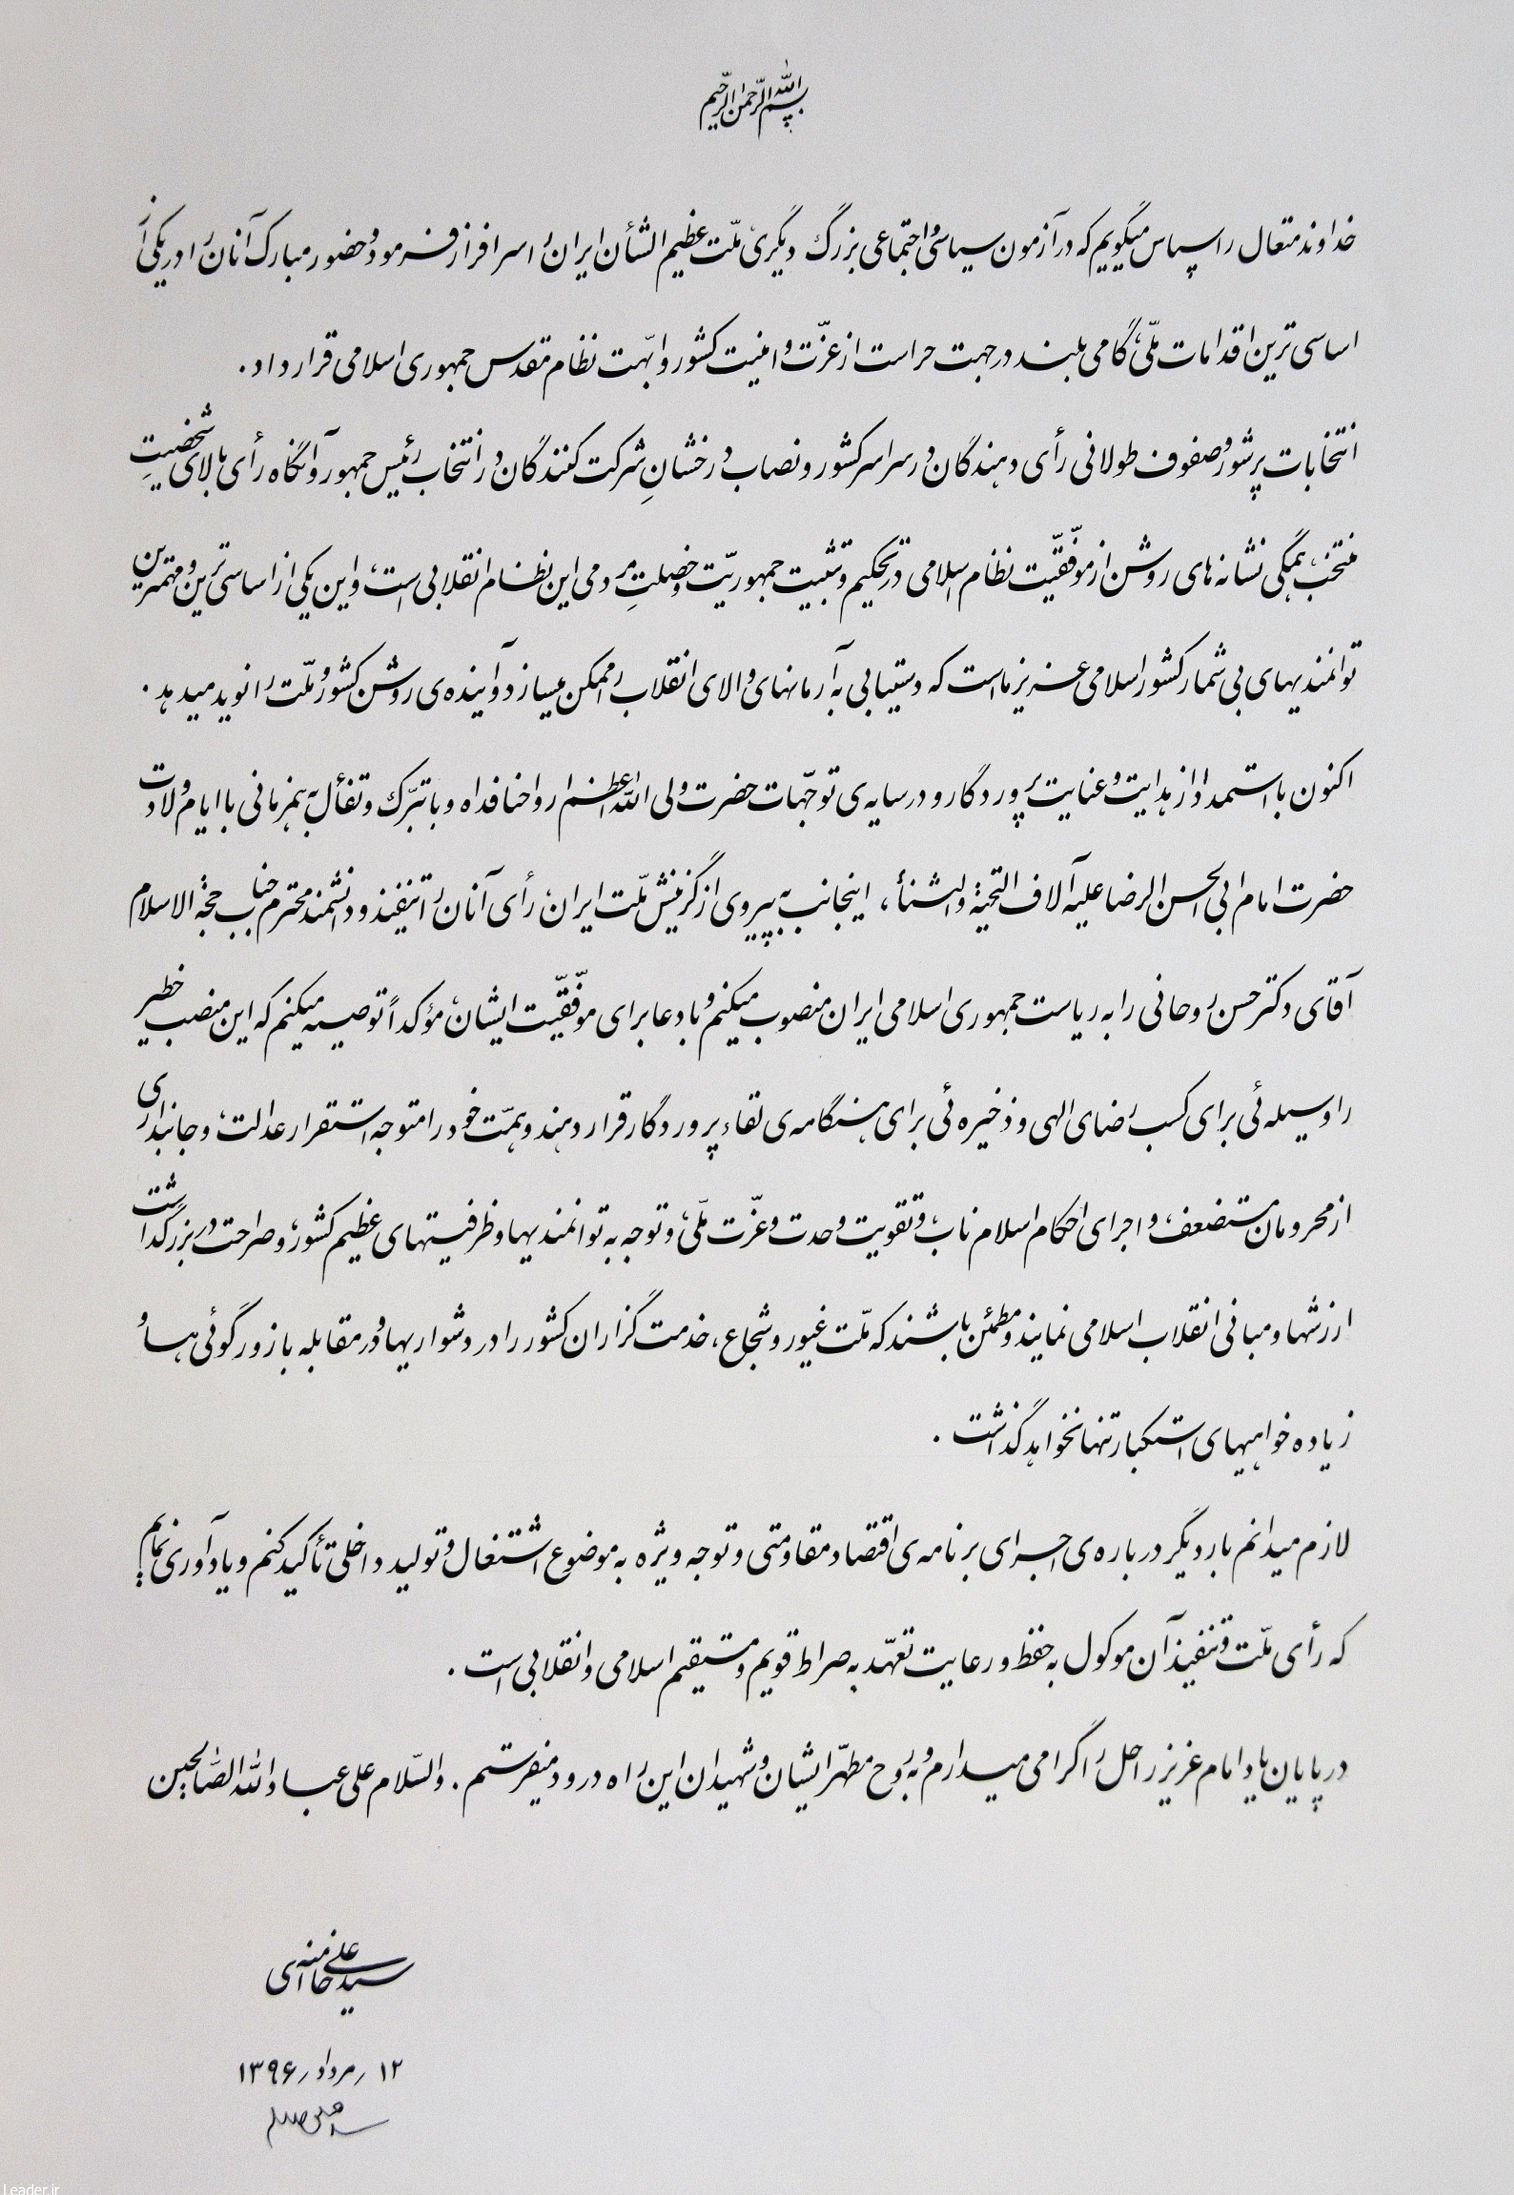 بسم الله الرحمن الرحیم
خداوند متعال را سپاس میگویم که در آزمون سیاسی و اجتماعی بزرگ دیگری، ملّت عظیم الشأن ایران را سرافراز فرمود و حضور مبارک آنان را در یکی از
اساسی‌ترین اقدامات ملّی، گامی بلند در جهت حراست از عزّت و امنیت کشور و ابّهت نظام مقدس جمهوری اسلامی قرار داد.
انتخابات پرشور و صفوف طولانی رأی دهندگان در سراسر کشور و نصاب درخشانِ شرکت کنندگان در انتخاب رئیس جمهور و آنگاه رأی بالای شخصیتِ
منتخب، همگی نشانه‌های روشن از موفّقیّت نظام اسلامی در تحکیم و تثبیت جمهوریّت و خصلتِ مردمی این نظام انقلابی است، و این یکی از اساسی‌ترین و مهمترین
توانمندیهای بی شمار کشور اسلامی عزیز ما است که دستیابی به آرمانهای والای انقلاب را ممکن میسازد و آینده‌ی روشن کشور و ملّت را نوید میدهد.
اکنون با استمداد از هدایت و عنایت پروردگار و در سایه‌ی توجّهات حضرت ولی الله الاعظم ارواحنا فداه و با تبرّک و تفأل به همزمانی با ایام ولادت
حضرت امام ابی الحسن الرضا علیه آلاف التحیة والثناء، اینجانب به پیروی از گزینش ملّت ایران، رأی آنان را تنفیذ و دانشمند محترم جناب حجة الاسلام
آقای دکتر حسن روحانی را به ریاست جمهوری اسلامی ایران منصوب میکنم و با دعا برای موفّقیّت ایشان، مؤکداً توصیه میکنم که این منصب خطیر
را وسیله‌ئی برای کسب رضای الهی و ذخیره‌ئی برای هنگامه‌ی لقاء پروردگار قرار دهند و همّت خود را متوجه استقرار عدالت، و جانبداری
از محرومان مستضعف، و اجرای احکام اسلام ناب، و تقویت وحدت و عزّت ملّی، و توجه به توانمندیها و ظرفیتهای عظیم کشور، و صراحت در بزرگداشت
ارزشها و مبانی انقلاب اسلامی نمایند و مطمئن باشند که ملّت غیور و شجاع، خدمت گزاران کشور را در دشواریها و در مقابله با زورگوئی‌ها و
زیاده خواهیهای استکبار تنها نخواهد گذاشت.
لازم میدانم بار دیگر درباره‌ی اجرای برنامه‌ی اقتصاد مقاومتی و توجه ویژه به موضوع اشتغال و تولید داخلی تأکید کنم و یادآوری نمایم
که رأی ملّت و تنفیذ آن موکول به حفظ و رعایت تعهّد به صراط قویم و مستقیم اسلامی و انقلابی است.
در پایان یاد امام عزیز راحل را گرامی میدارم و به روح مطهّر ایشان و شهیدان این راه درود میفرستم. والسّلام علی عباد الله الصّالحین
سید علی خامنه‌ای
۱۲ / مرداد / ۱۳۹۶
Leader.ir